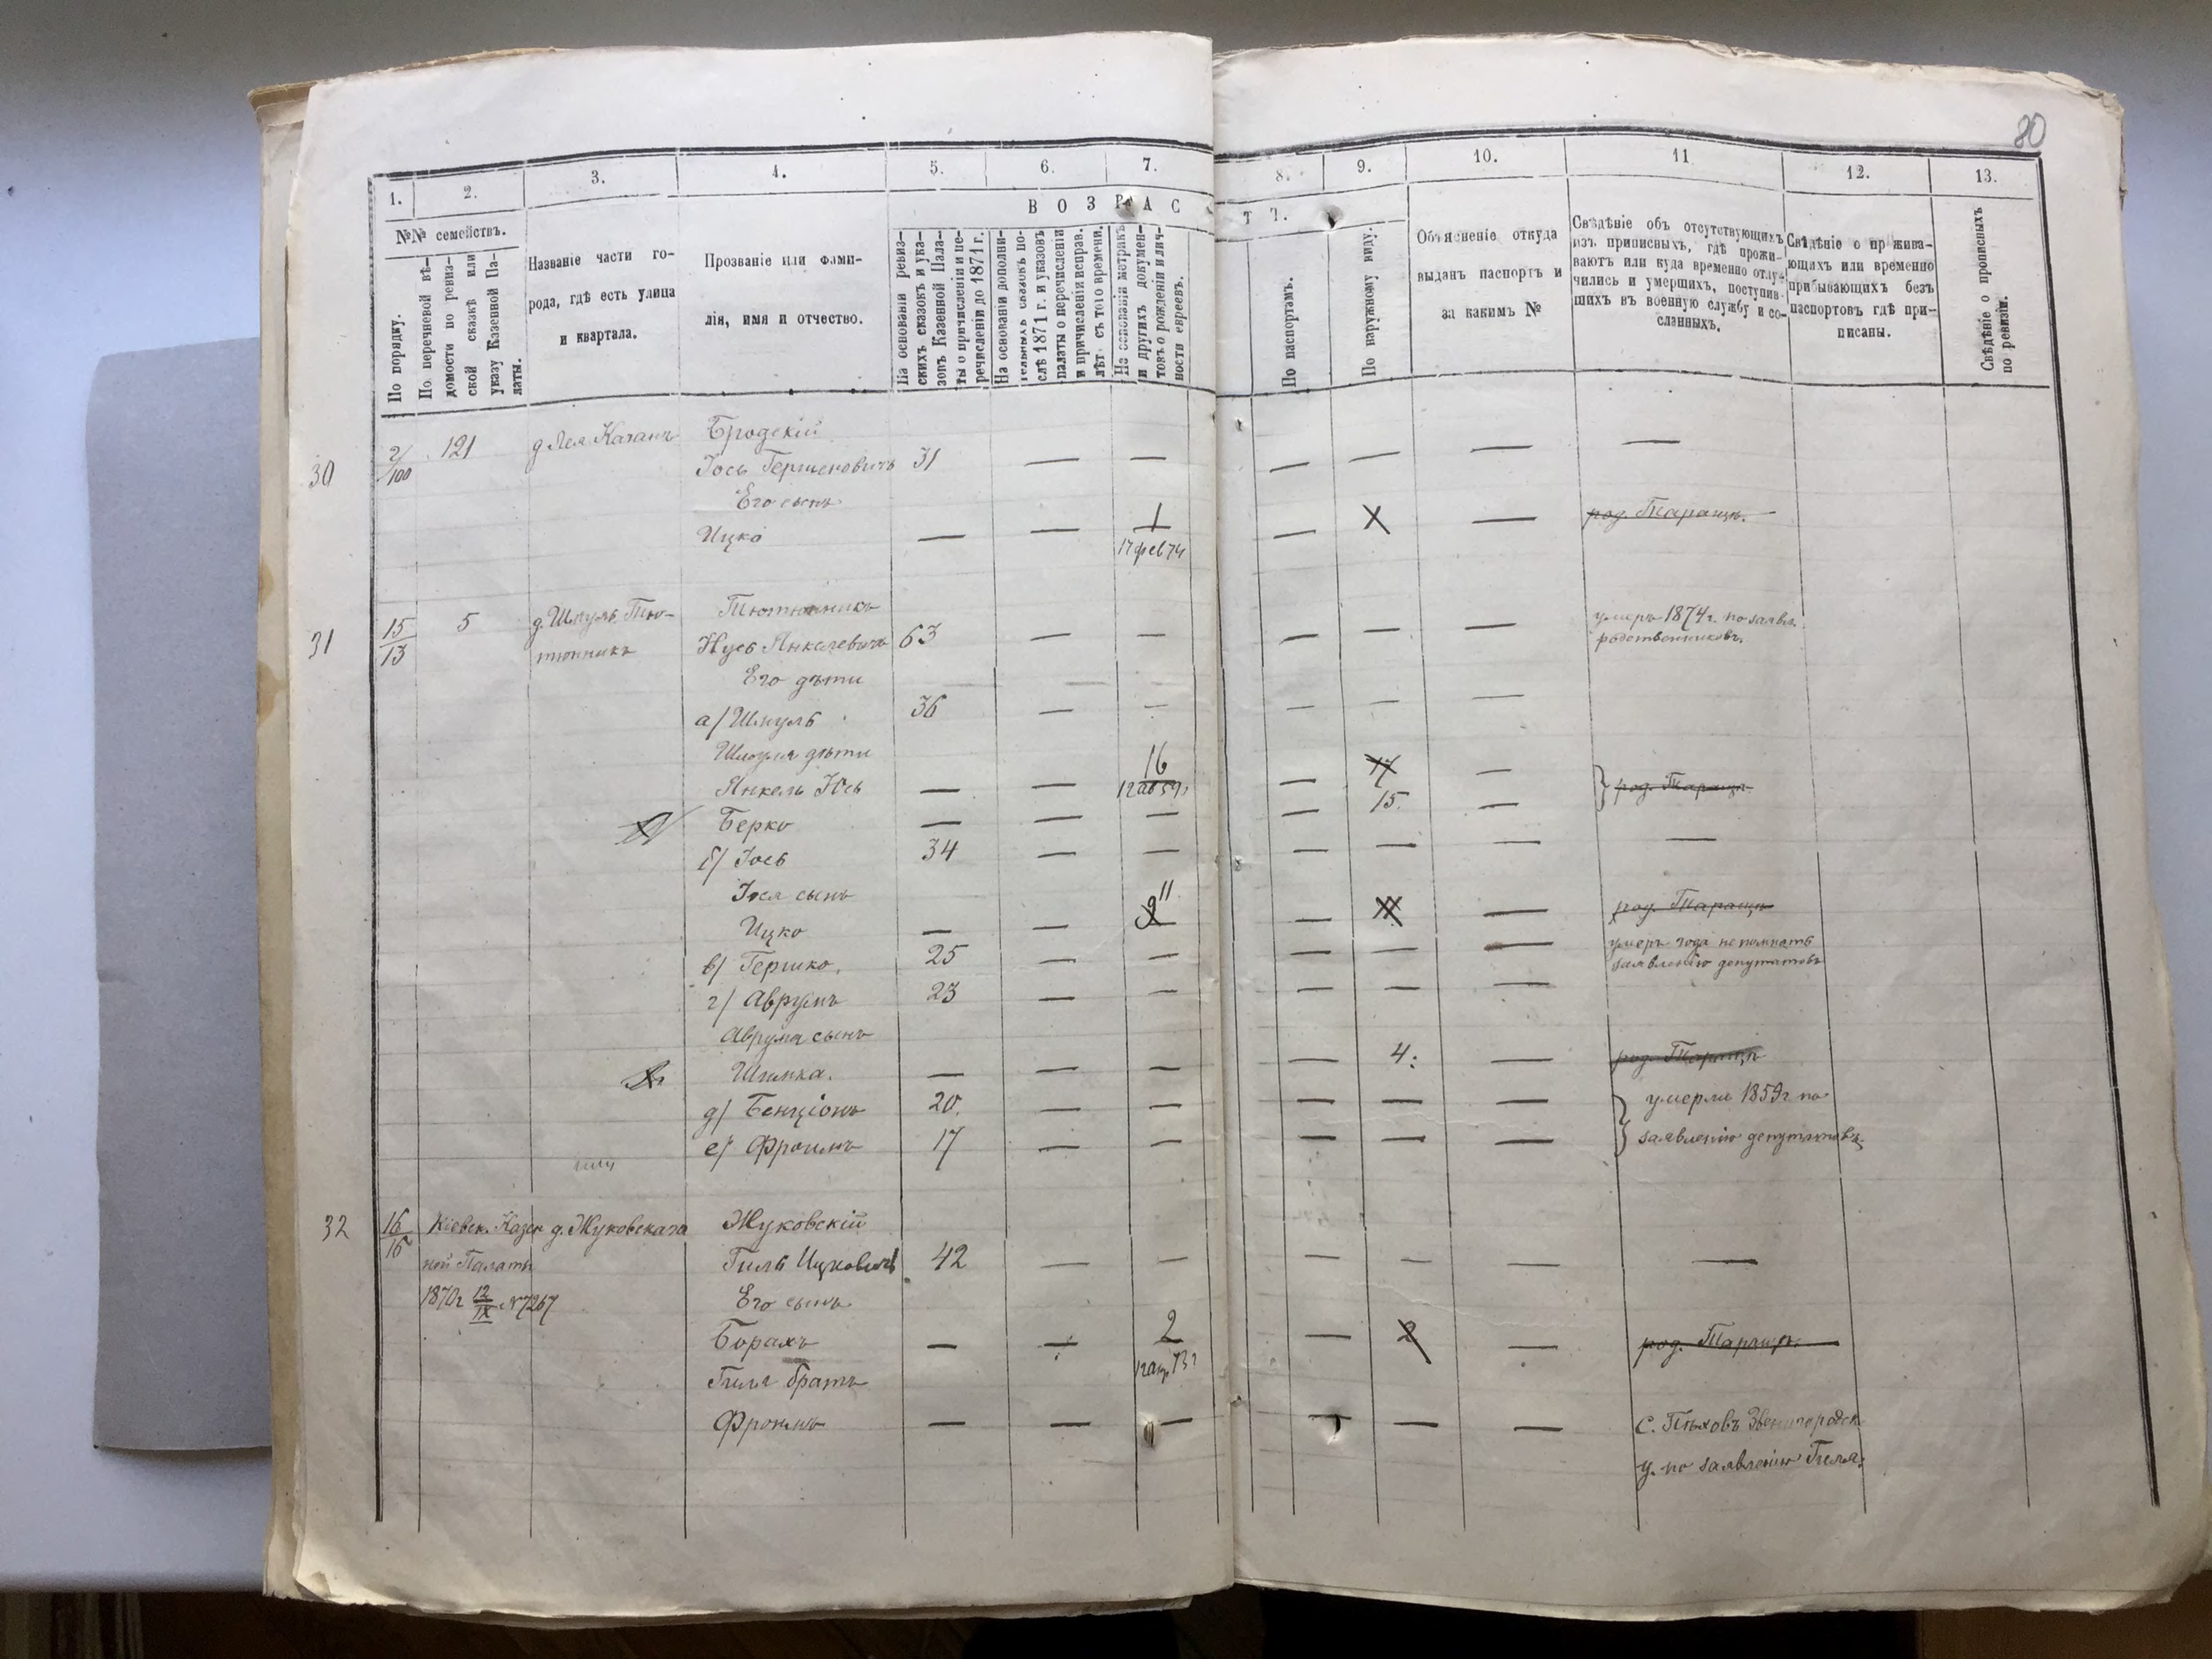 80
1. 2. 3. 4. 5. 6. 7. 8. 9. 10. 11 12. 13.
№№ семействъ.
ВОЗРАСТЪ.
По порядку.
По перечневой вѣ-
домости по ревиз-
ской сказкѣ или
указу Казенной Па-
латы.
Названіе части го-
рода, гдѣ есть улица
и квартала.
Прозваніе или фами-
лія, имя и отчество.
На основаніи ревиз-
скихъ сказокъ и ука-
зовъ Казенной Пала-
ты о причисленіи и пе-
речисленіи до 1871 г.
На основаніи дополни-
тельныхъ сказокъ по-
слѣ 1871 г. и указовъ
палаты о перечисленіи
и причисленіи исправ.
лѣт. съ того времени.
На основаніи метрикъ
и другихъ докумен-
товъ о рожденіи и лич-
ности евреевъ.
По паспортамъ.
По наружному виду.
Объясненіе откуда
выданъ паспортъ и
за какимъ №
Свѣдѣніе объ отсутствующихъ
изъ приписныхъ, гдѣ прожи-
ваютъ или куда временно отлу-
чились и умершихъ, поступив-
шихъ въ военную службу и со-
сланныхъ.
Свѣдѣніе о прожива-
ющихъ или временно
прибывающихъ безъ
паспортовъ гдѣ при-
писаны.
Свѣдѣніе о прописныхъ
по ревизіи.
30 2/100 121 д Лея Каганъ Бродскій
Іось Гершковичъ 31 — — — — — —
Его сынъ
Ицко — — 1 — X — род. Тараща.
17 фев 74
31 15/13 5 д. Шмуль Тю- Тютюнникъ умеръ 1874 г. по заявл.
тюнникъ Нусь Янкелевичъ 63 — — — — — родственниковъ.
Его дѣти
а/ Шмуль 36 — — — — —
Шмуля дѣти
Янкель Юсь — — 16 — 17 — род. Тараща
12 ав 59
Берко — — — — 15. —
б/ Іось 34 — — — — — —
Іося сынъ
Ицко — — 9 11 — — род. Тараща
в/ Гершко. 25 — — — — — умеръ года не помнятъ
заявленію депутатовъ
г/ Аврумъ 23 — — — — —
Аврума сынъ
Шимка. — — — — 4. — род. Тараща
д/ Бенціонъ 20. — — — — — умерли 1859 г по
е/ Фроимъ 17 — — — — — заявленію депутатовъ
32 16/15 Кіевск. Казен д. Жуковскаго Жуковскій
ной Палаты Гиль Ицковичъ 42 — — — — — —
1870 г 12/IX №7267 Его сынъ
Борахъ — — 2 — 2 — род. Тараща
Гиля братъ
Фроимъ — — — — — — с. Звенигородск.
у. по заявленію Гиля.